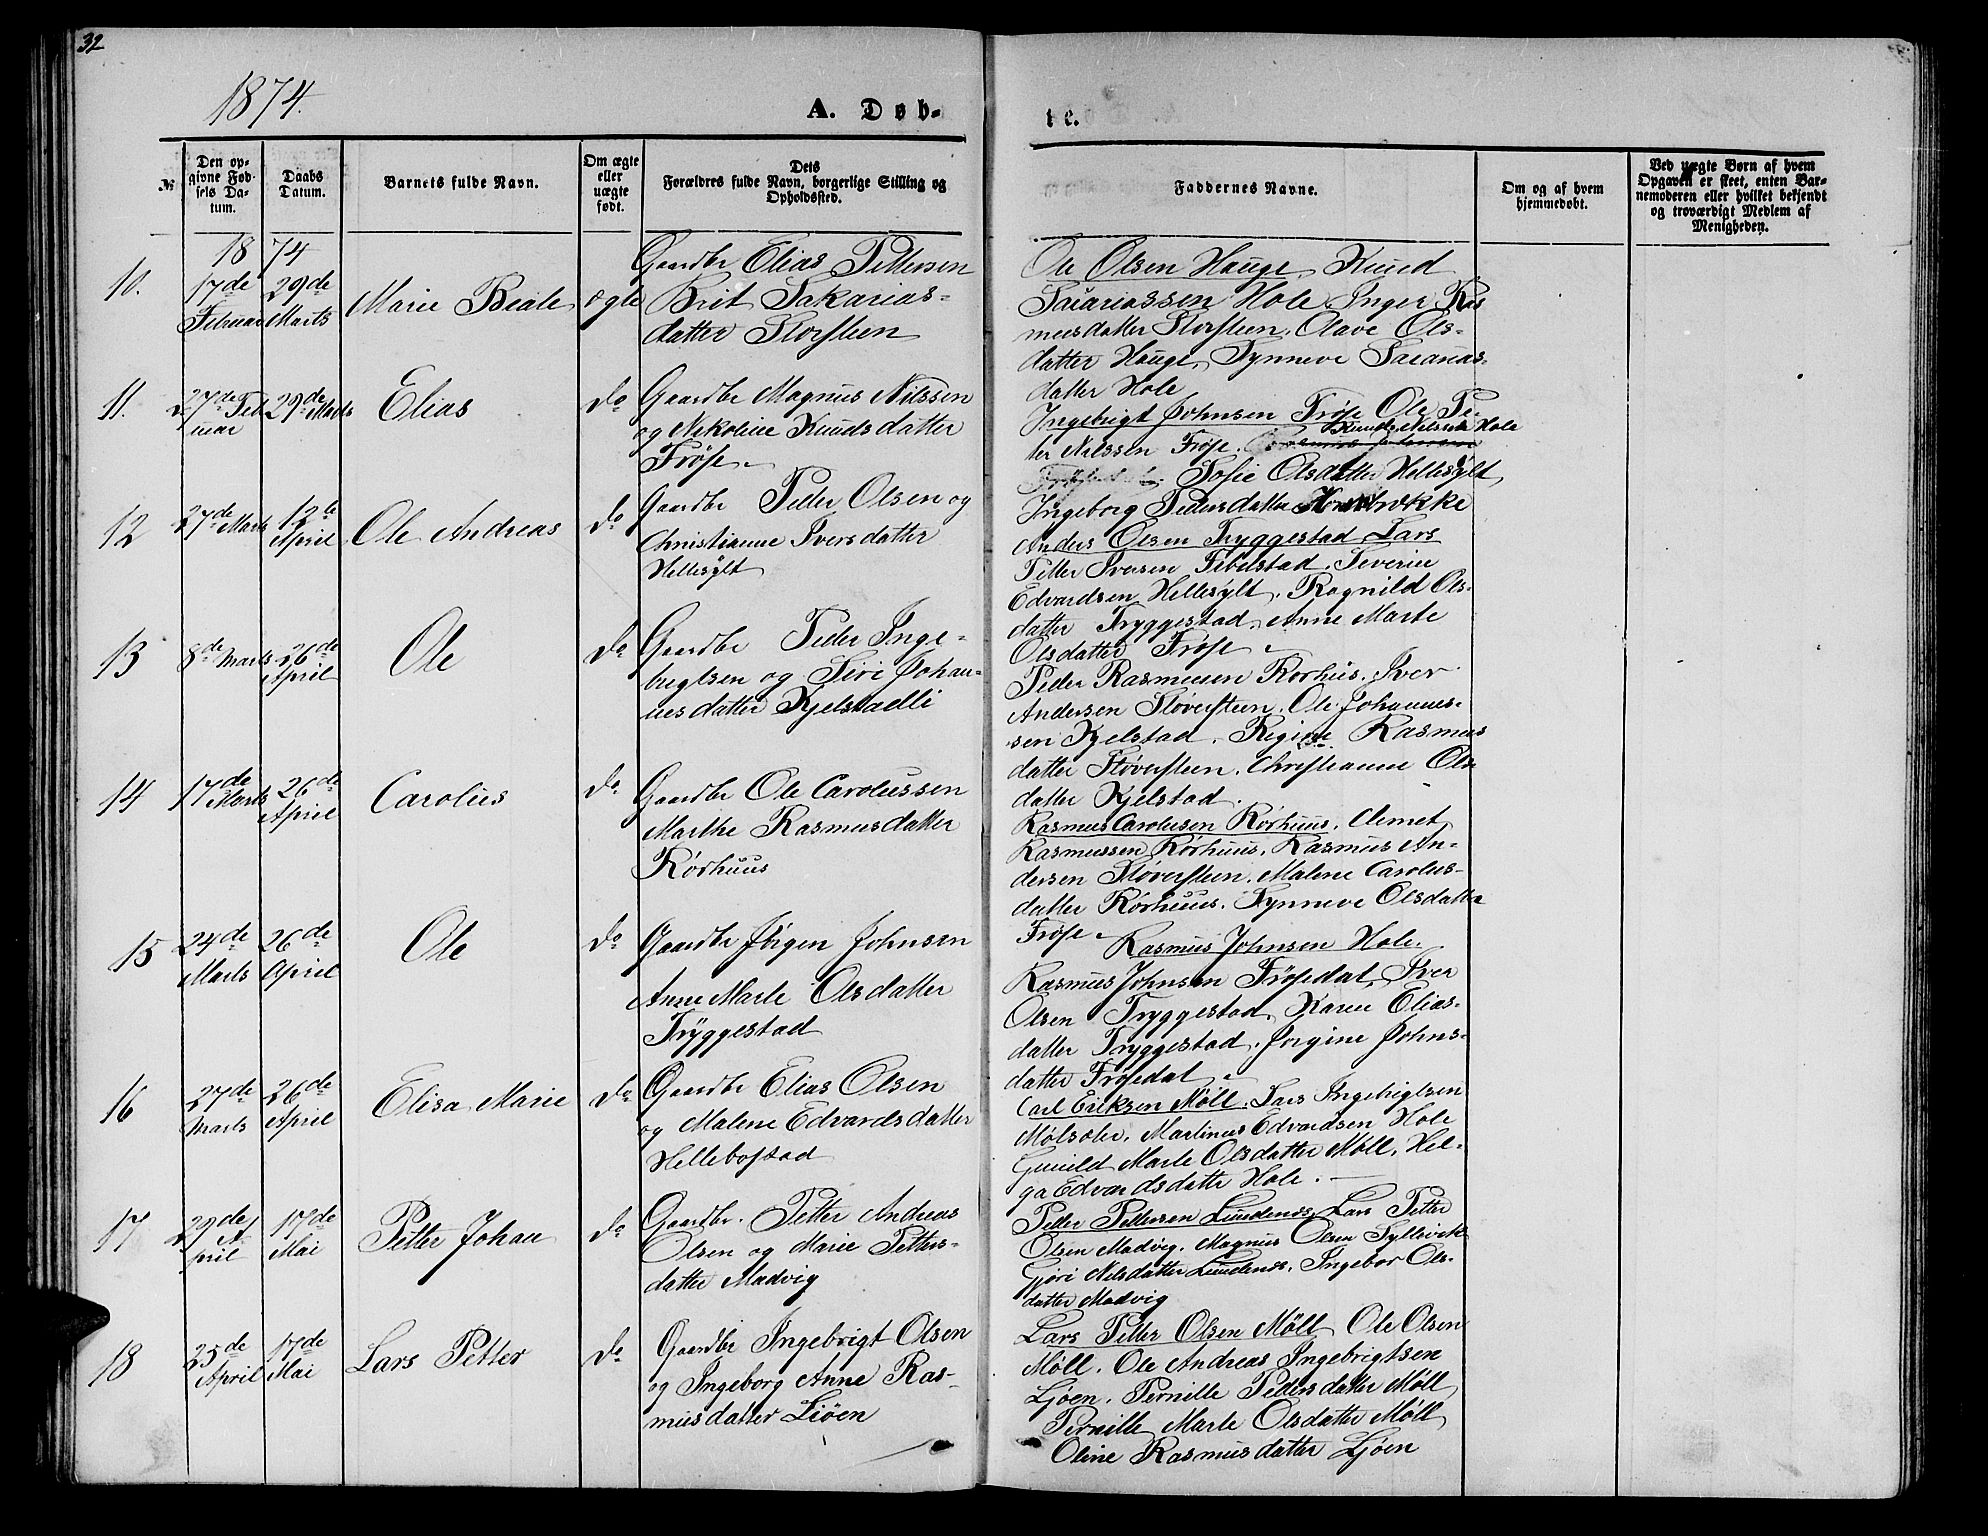 32
1874.
A. Døb-
te.
№
Den op-
givne Fød-
sels Da-
tum.
Daabs
Datum.
Barnets fulde Navn.
Om ægte
eller
uægte
født.
Dets
Forældres fulde Navn, borgerlige Stilling og
Opholdssted.
Faddernes Navne.
Om og af hvem
hjemmedøbt.
Ved uægte Børn af hvem
Opgaven er skeet, enten Bar-
nemoderen eller hvilket bekjendt
og troværdigt Medlem af
Menigheden.
1874
10.
17de
Februar
29de
Marts
Marie Beate
ægte
Gaardbr Elias Pettersen
Brit Sakarias-
datter Storsteen
Ole Olsen Hauge, Knud
Sacariassen Hole, Inger Ras
musdatter Storsteen, Olave Ols-
datter Hauge, Synneve Sacarias-
datter Hole
11.
27de Feb
uar
29de Marts
Elias
do
Gaardbr Magnus Nilssen
og Nikoline Knudsdatter
Frøse
Ingebrigt Johnsen Frøse Ole Pe-
ter Nilssen Frøse, Knud Nilssen Hole
Sofie Olsdatter Hellesylt
Ingeborg Pedersdatter Kornbrække
12
27de Marts
12te
April
Ole Andreas
do
Gaardbr Peder Olsen og
Christianne Iversdatter
Hellesylt
Anders Olsen Tryggestad Lars
Petter Iversen Fibelstad, Severin
Edvardsen Hellesylt, Ragnild Ols-
datter Tryggestad, Anne Marte
Olsdatter Frøse
13
8de Marts
26de
April
Ole
do
Gaardbr Peder Inge-
brigtsen og Siri Johan-
nesdatter Kjelstadli
Peder Rasmussen Rørhus, Iver
Andersen Støversteen, Ole Johannes-
sen Kjelstad, Regine Rasmus
datter Støversteen, Christianne Ols
datter Kjelstad.
14
17de
Marts
26de
April
Carolus
do
Gaardbr Ole Carolussen
Marthe Rasmusdatter
Rørhuus
Rasmus Carolusen Rørhuus, Clemet
Rasmussen Rørhuus, Rasmus An-
dersen Støversteen, Malene Carolus-
datter Rørhuus, Synneve Olsdatter
Frøse
15
24de
Marts
26de
April
Ole
do
Gaardbr Jørgen Johnsen
Anne Marte Olsdatter
Tryggestad
Rasmus Johnsen Hole,
Rasmus Johnsen Frøsedal, Iver
Olsen Tryggestad, Karen Elias-
datter Tryggestad, Jørgine Johns-
datter Frøsedal
16
27de
Marts
26de
April
Elisa Marie
do
Gaardbr Elias Olsen
og Malene Edvardsdatter
Hellebostad
Carl Eriksen Møll, Lars Ingebrigtsen
Mølsæter, Martinus Edvardsen Hole
Gunild Marte Olsdatter Møll, Hel-
ga Edvardsdatter Hole.
17
29de A
pril
17de
Mai
Petter Johan
do
Gaardbr. Petter Andreas
Olsen og Marie Petters-
datter Madvig
Petter Pettersen Lundenes, Lars Petter
Olsen Madvig, Magnus Olsen Syltevik
Gjøri Nilsdatter Lundenes, Ingebor Ols-
datter Madvig
18
25de
April
17de
Mai
Lars Petter
do
Gaardbr Ingebrigt Olsen
og Ingeborg Anne Ras-
musdatter Liøen
Lars Petter Olsen Møll, Ole Olsen
Møll, Ole Andreas Ingebrigtsen
Ljøen, Pernille Pedersdatter Møll,
Pernille Marte Olsdatter Møll
Oline Rasmusdatter Ljøen